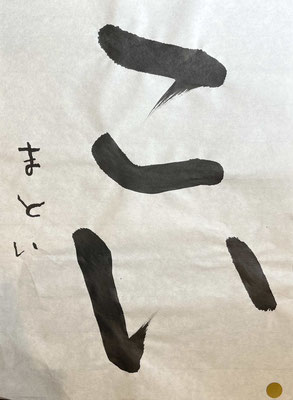 こい
まとい